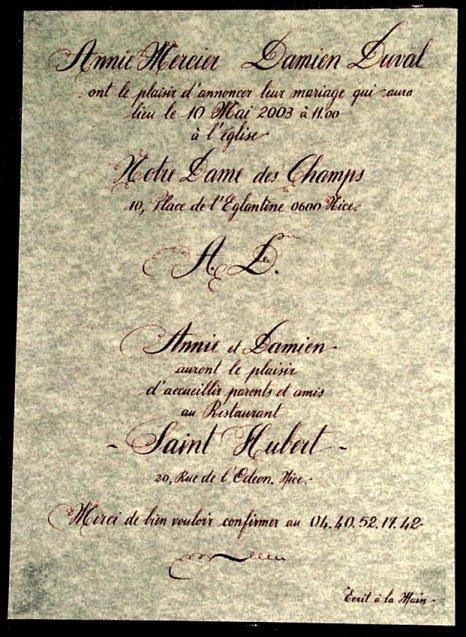 Annie Mercier Damien Duval
ont le plaisir d'annoncer leur mariage qui aura
lieu le 10 Mai 2003 à 11.00
à l'église
Notre Dame des Champs
10, Place de l'Eglantine 0600 Nice.
A. D.
Annie et Damien
auront le plaisir
d'accueillir parents et amis
au Restaurant
- Saint Hubert -
20, Rue de l'Odeon. Nice.
Merci de bien vouloir confirmer au 04.40.52.17.42
Ecrit à la Main